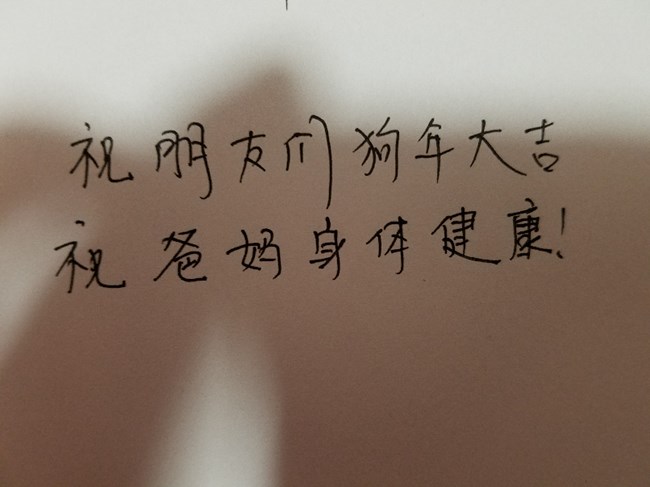 祝朋友们狗年大吉
祝爸妈身体健康!